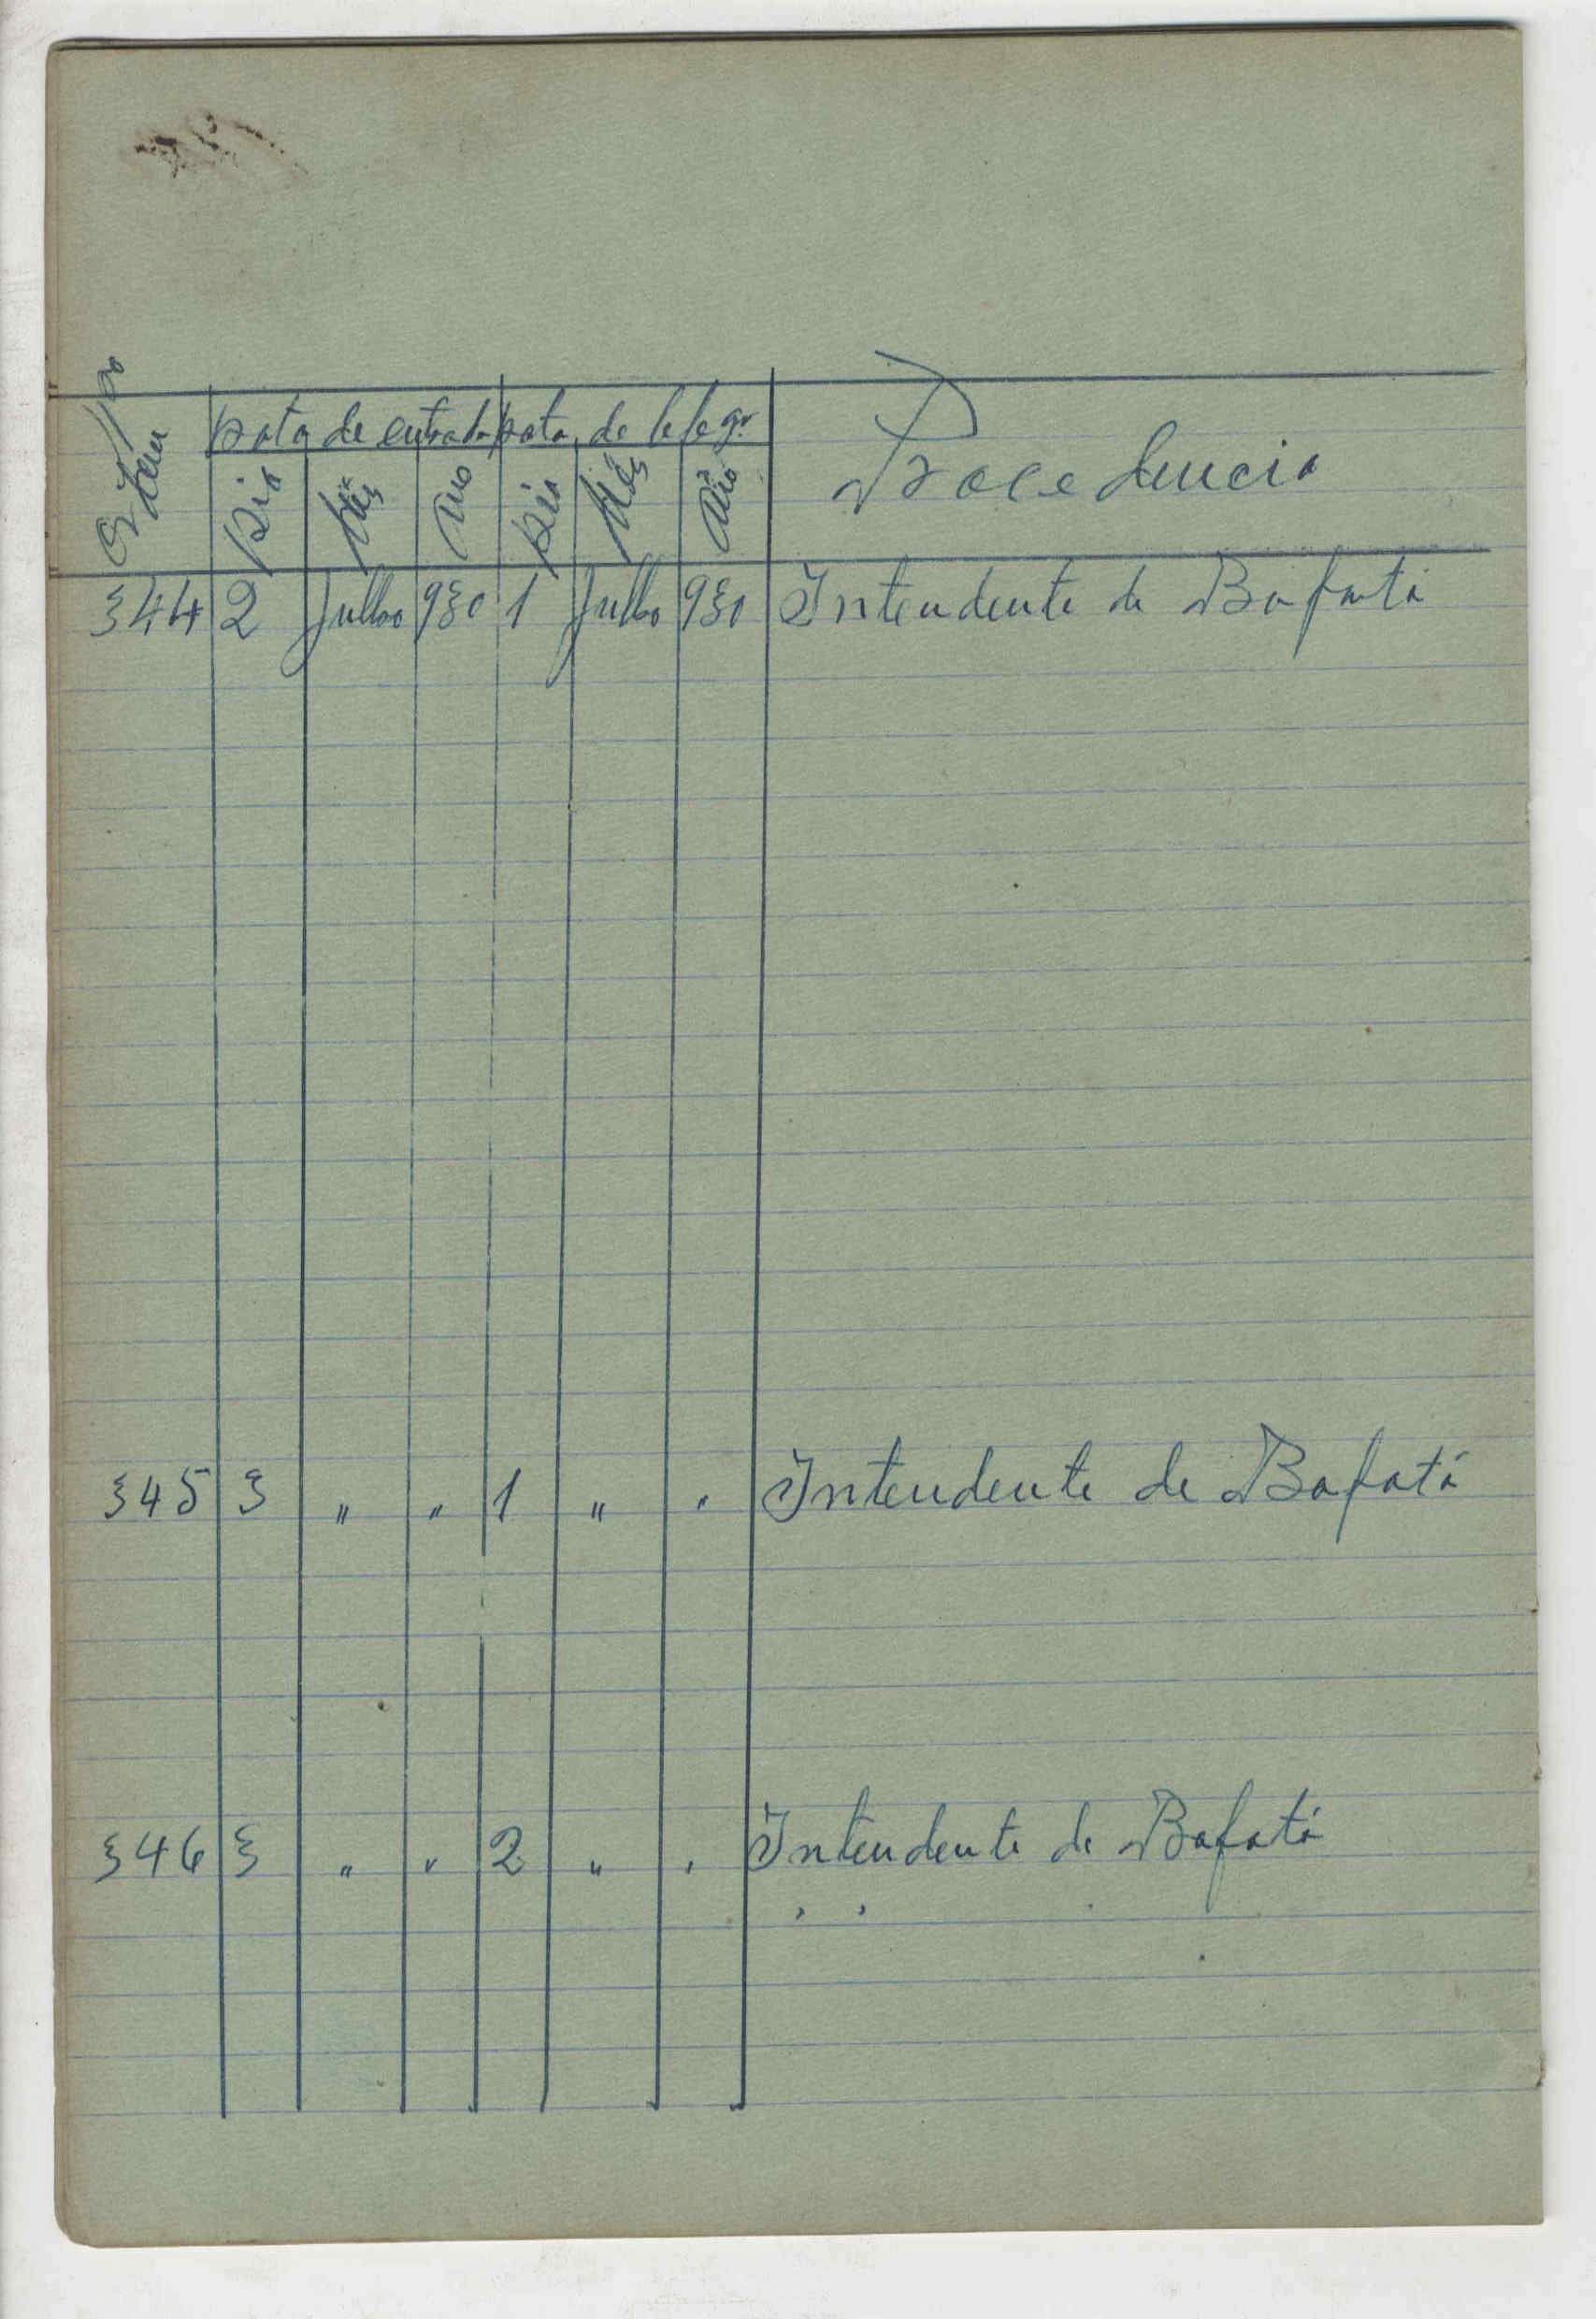 Nº de Ordem
Data de entrada Data de telegr.
Dia Mês Ano Dia Mês Ano Procedencia
344 2 Julho 930 1 Julho 930 Intendente de Bafatá
345 3 " " 1 " " Intendente de Bafatá
346 3 " " 2 " " Intendente de Bafatá
" "